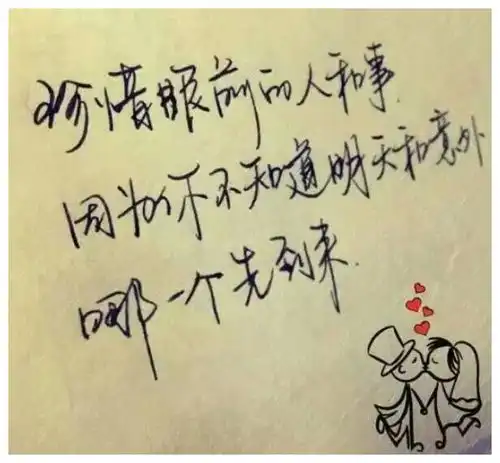 珍惜眼前的人和事.
因为你不知道明天和意外
哪一个先到来.